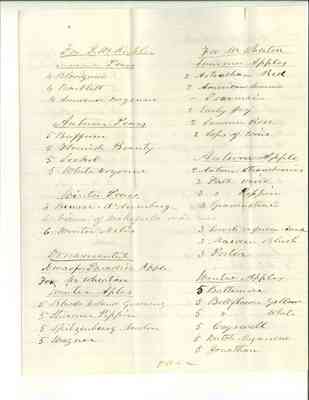 For
Summer Pears
4 Bloodgood
4 Bartlett
4 Summer Doyenne
Autumn Pears
5 Buffum
5 Flemish Beauty
5 Seckel
5 White Doyenne
Winter Pears
4 Beurre
6 Winter Nelis
Ornamental
Dwarf or Paradise Apple
For Mr Wheelan
Winter Apples
5 Rhode Island Greening
5 Newton Pippin
5 Spitzenberg
5 Wagner
For Mr Wheelan
Summer Apples
2 Astrachan Red
2 American Summer
Pearmain
2 Early Joy
2 Summer Rose
2 Sops of Wine
Autumn Apple
2 Autumn Strawberries
2 Fall Wine
2 " Pippin
2 Gravenstein
3 Maiden Blush
3 Porter
Winter Apples
5 Baltimore
5 Bellflower Yellow
5 " White
5 Cogswell
5 Dutch Mignonne
5 Jonathan